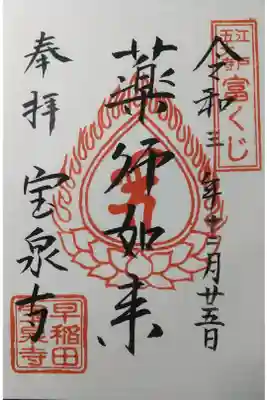 江戸
五
富くじ
令和三年十二月廿五日
薬师如来
奉拝
宝泉寺
早稲田
宝泉寺